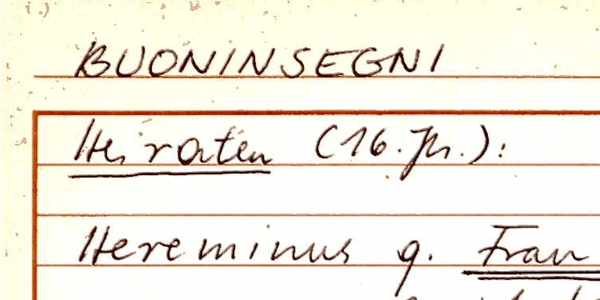 BUONINSEGNI
Heiraten (16. Jh.):
Hereminus q. Fran